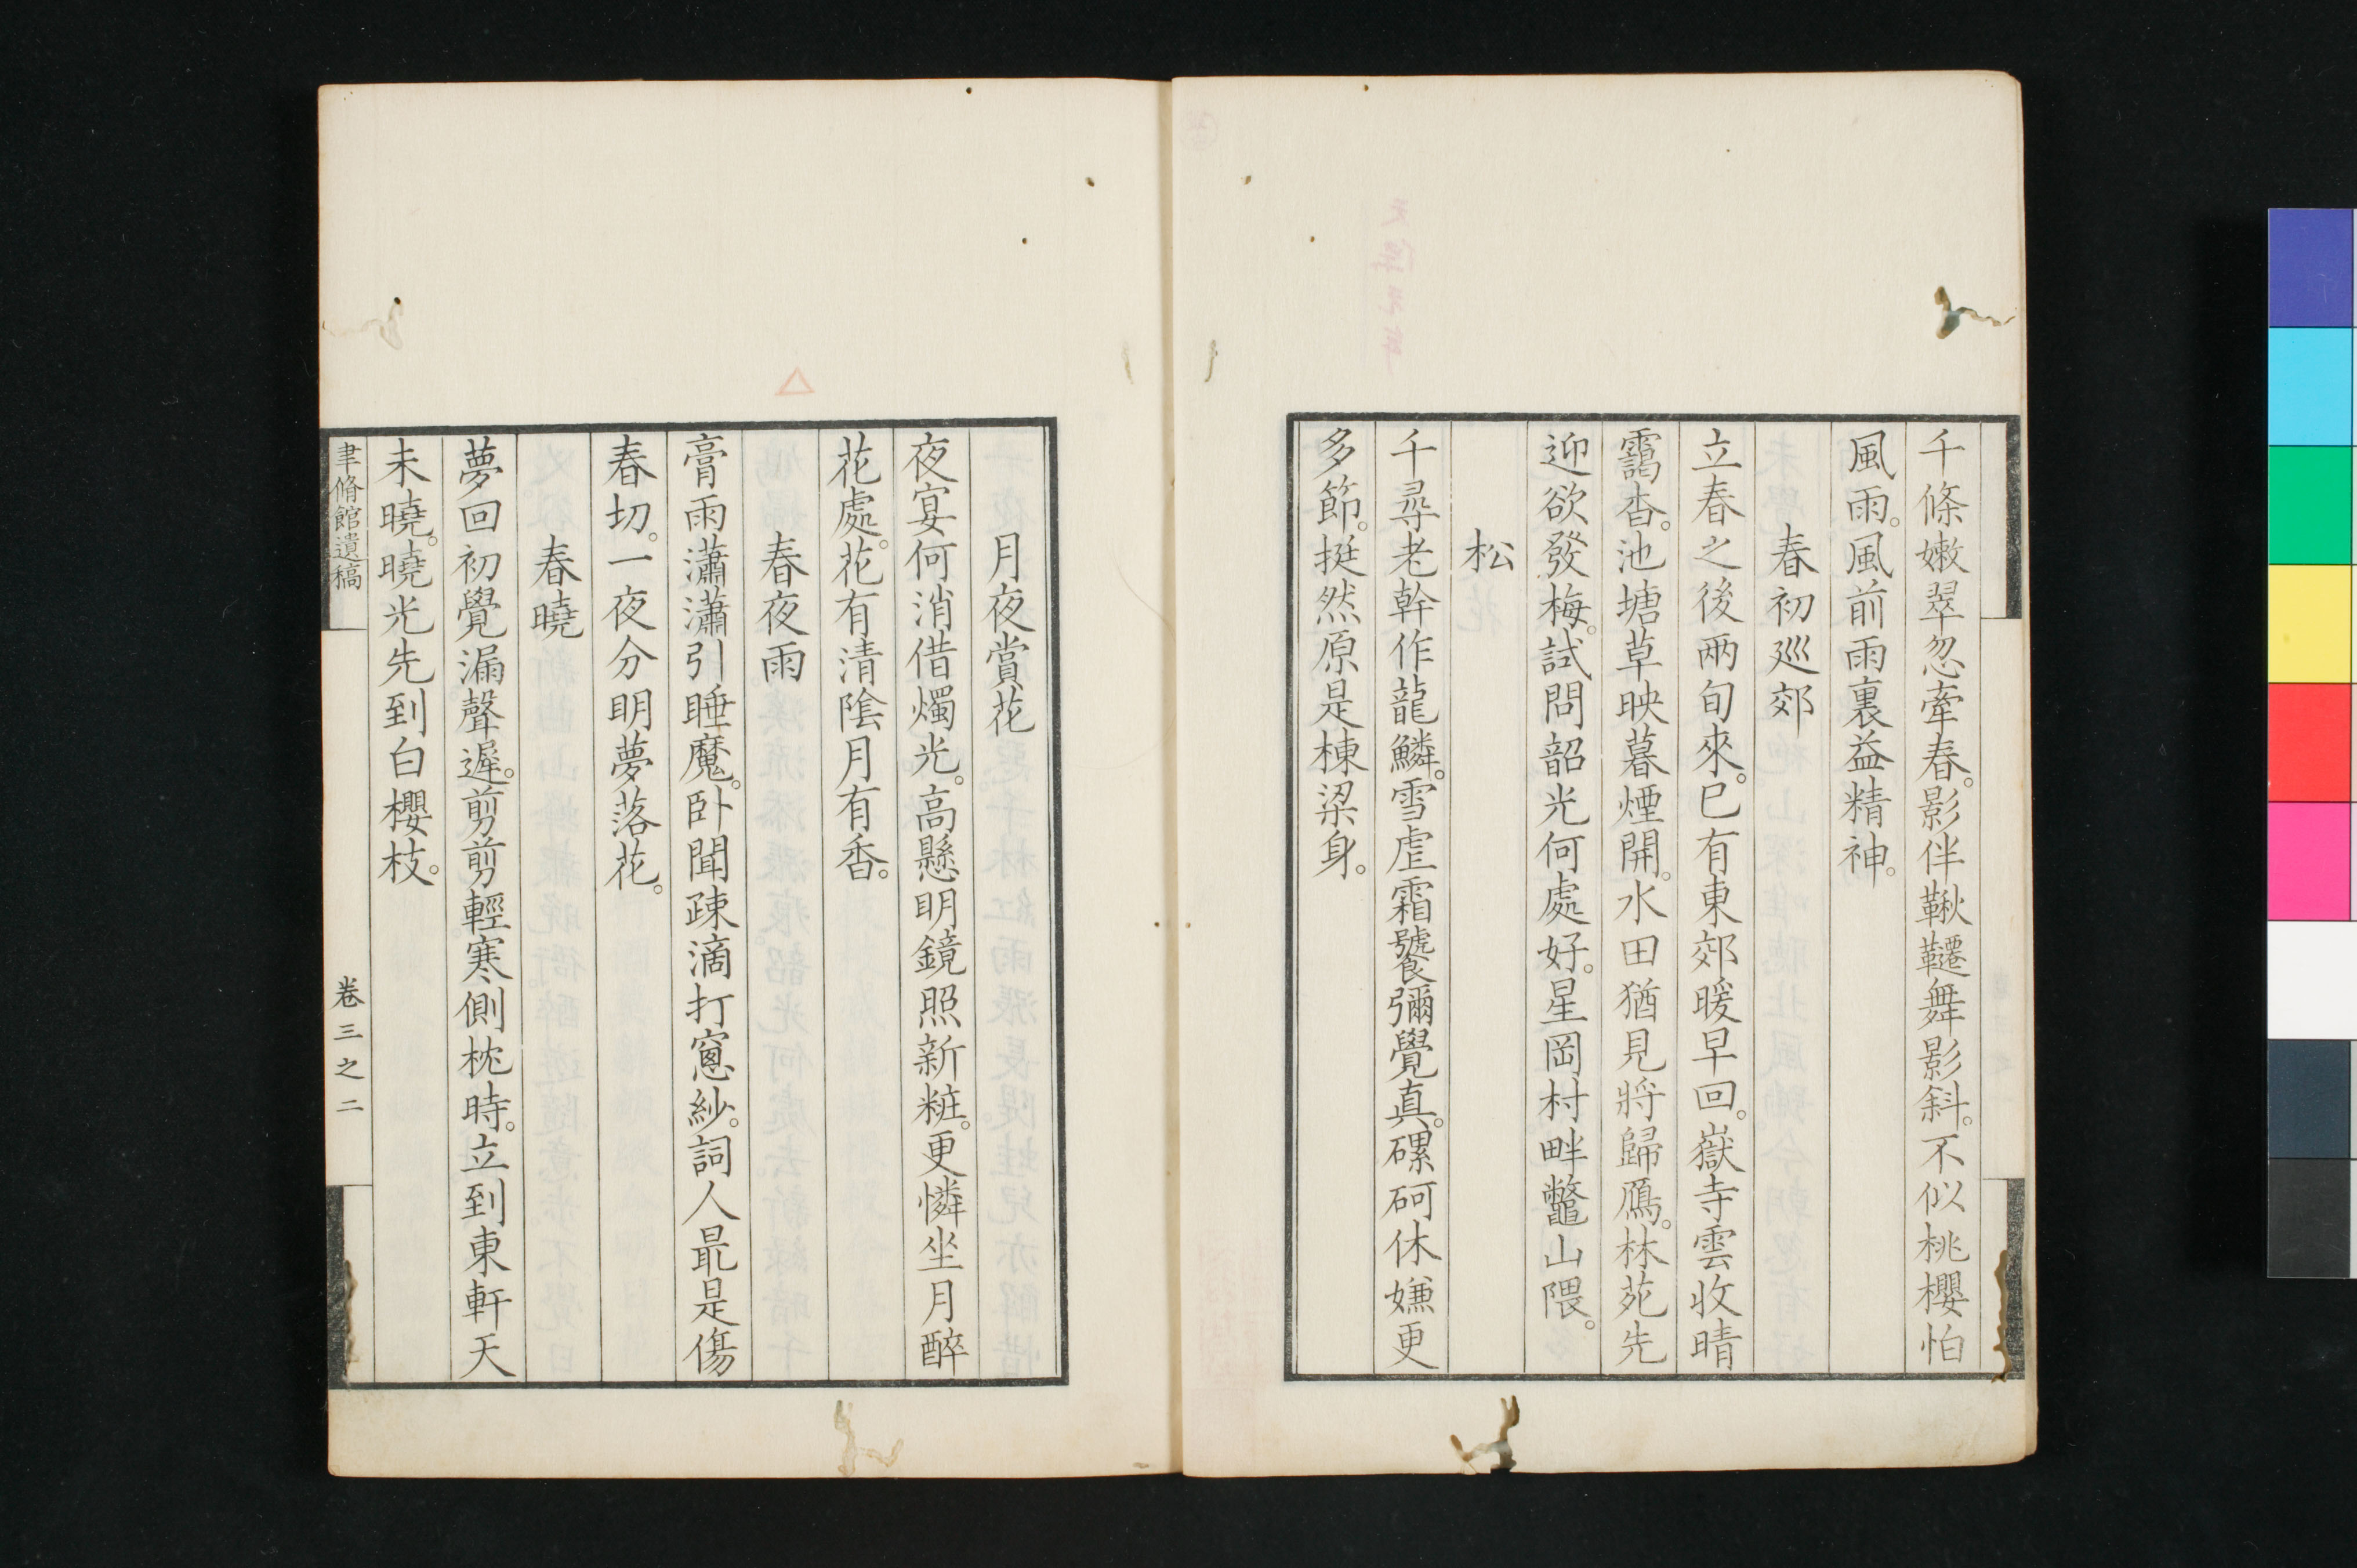 千條嫩翠忽牽春。影伴鞦韆舞影斜。不似桃櫻怕
風雨。風前雨裏益精神。
春初巡郊
立春之後兩旬來。已有東郊暖早回。嶽寺雲收晴
靄杳。池塘草映暮煙開。水田猶見將歸鴈。林苑先
迎欲發梅。試問韶光何處好。星岡村畔鼈山隈。
松
千尋老幹作龍鱗。雪虐霜饕彌覺真。磥砢休嫌更
多節。挺然原是棟梁身。
月夜賞花
夜宴何消借燭光。高懸明鏡照新粧。更憐坐月醉
花處。花有清陰月有香。
春夜雨
膏雨瀟瀟引睡魔。卧聞疎滴打窻紗。詞人最是傷
春切。一夜分明夢落花。
春曉
夢回初覺漏聲遲。剪剪輕寒側枕時。立到東軒天
未曉。曉光先到白櫻枝。
聿脩館遺稿
卷三之二